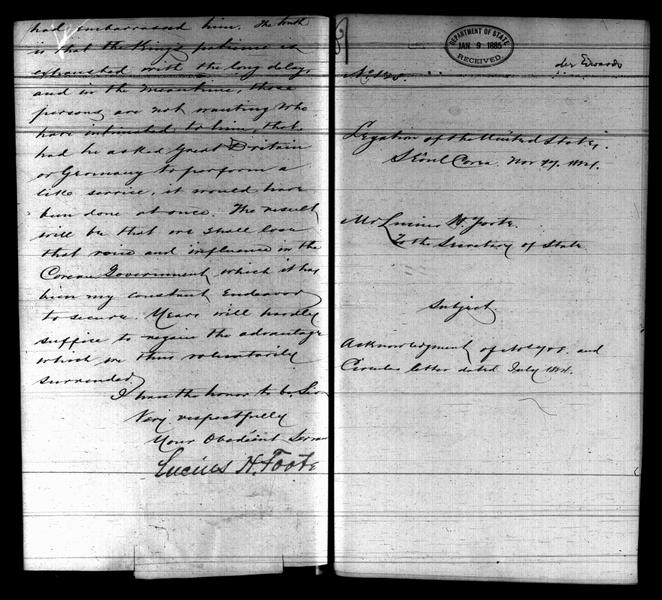 had embarrassed him. The truth
is that the King's patience is
exhausted with the long delay,
and in the meantime, those
persons are not wanting who
have intimated to him, that
had he asked Great Britain
or Germany to perform a
like service, it would have
been done at once. The result
will be that we shall lose
that voice and influence in the
Corean Government, which it has
been my constant Endeavor
to secure. Years will hardly
suffice to regain the advantage
which we thus voluntarily
surrender.
I have the honor to be, Sir
Very respectfully
Your Obedient Servan
Lucius H. Foote
DEPARTMENT OF STATE
JAN 9 1885
RECEIVED
Legation of the United States,
Sëoul Corea Nov 1884.
Mr Lucius H. Foote.
To the Secretary of State
Subject
Acknowledgment of and
Circular letter dated July 1884.